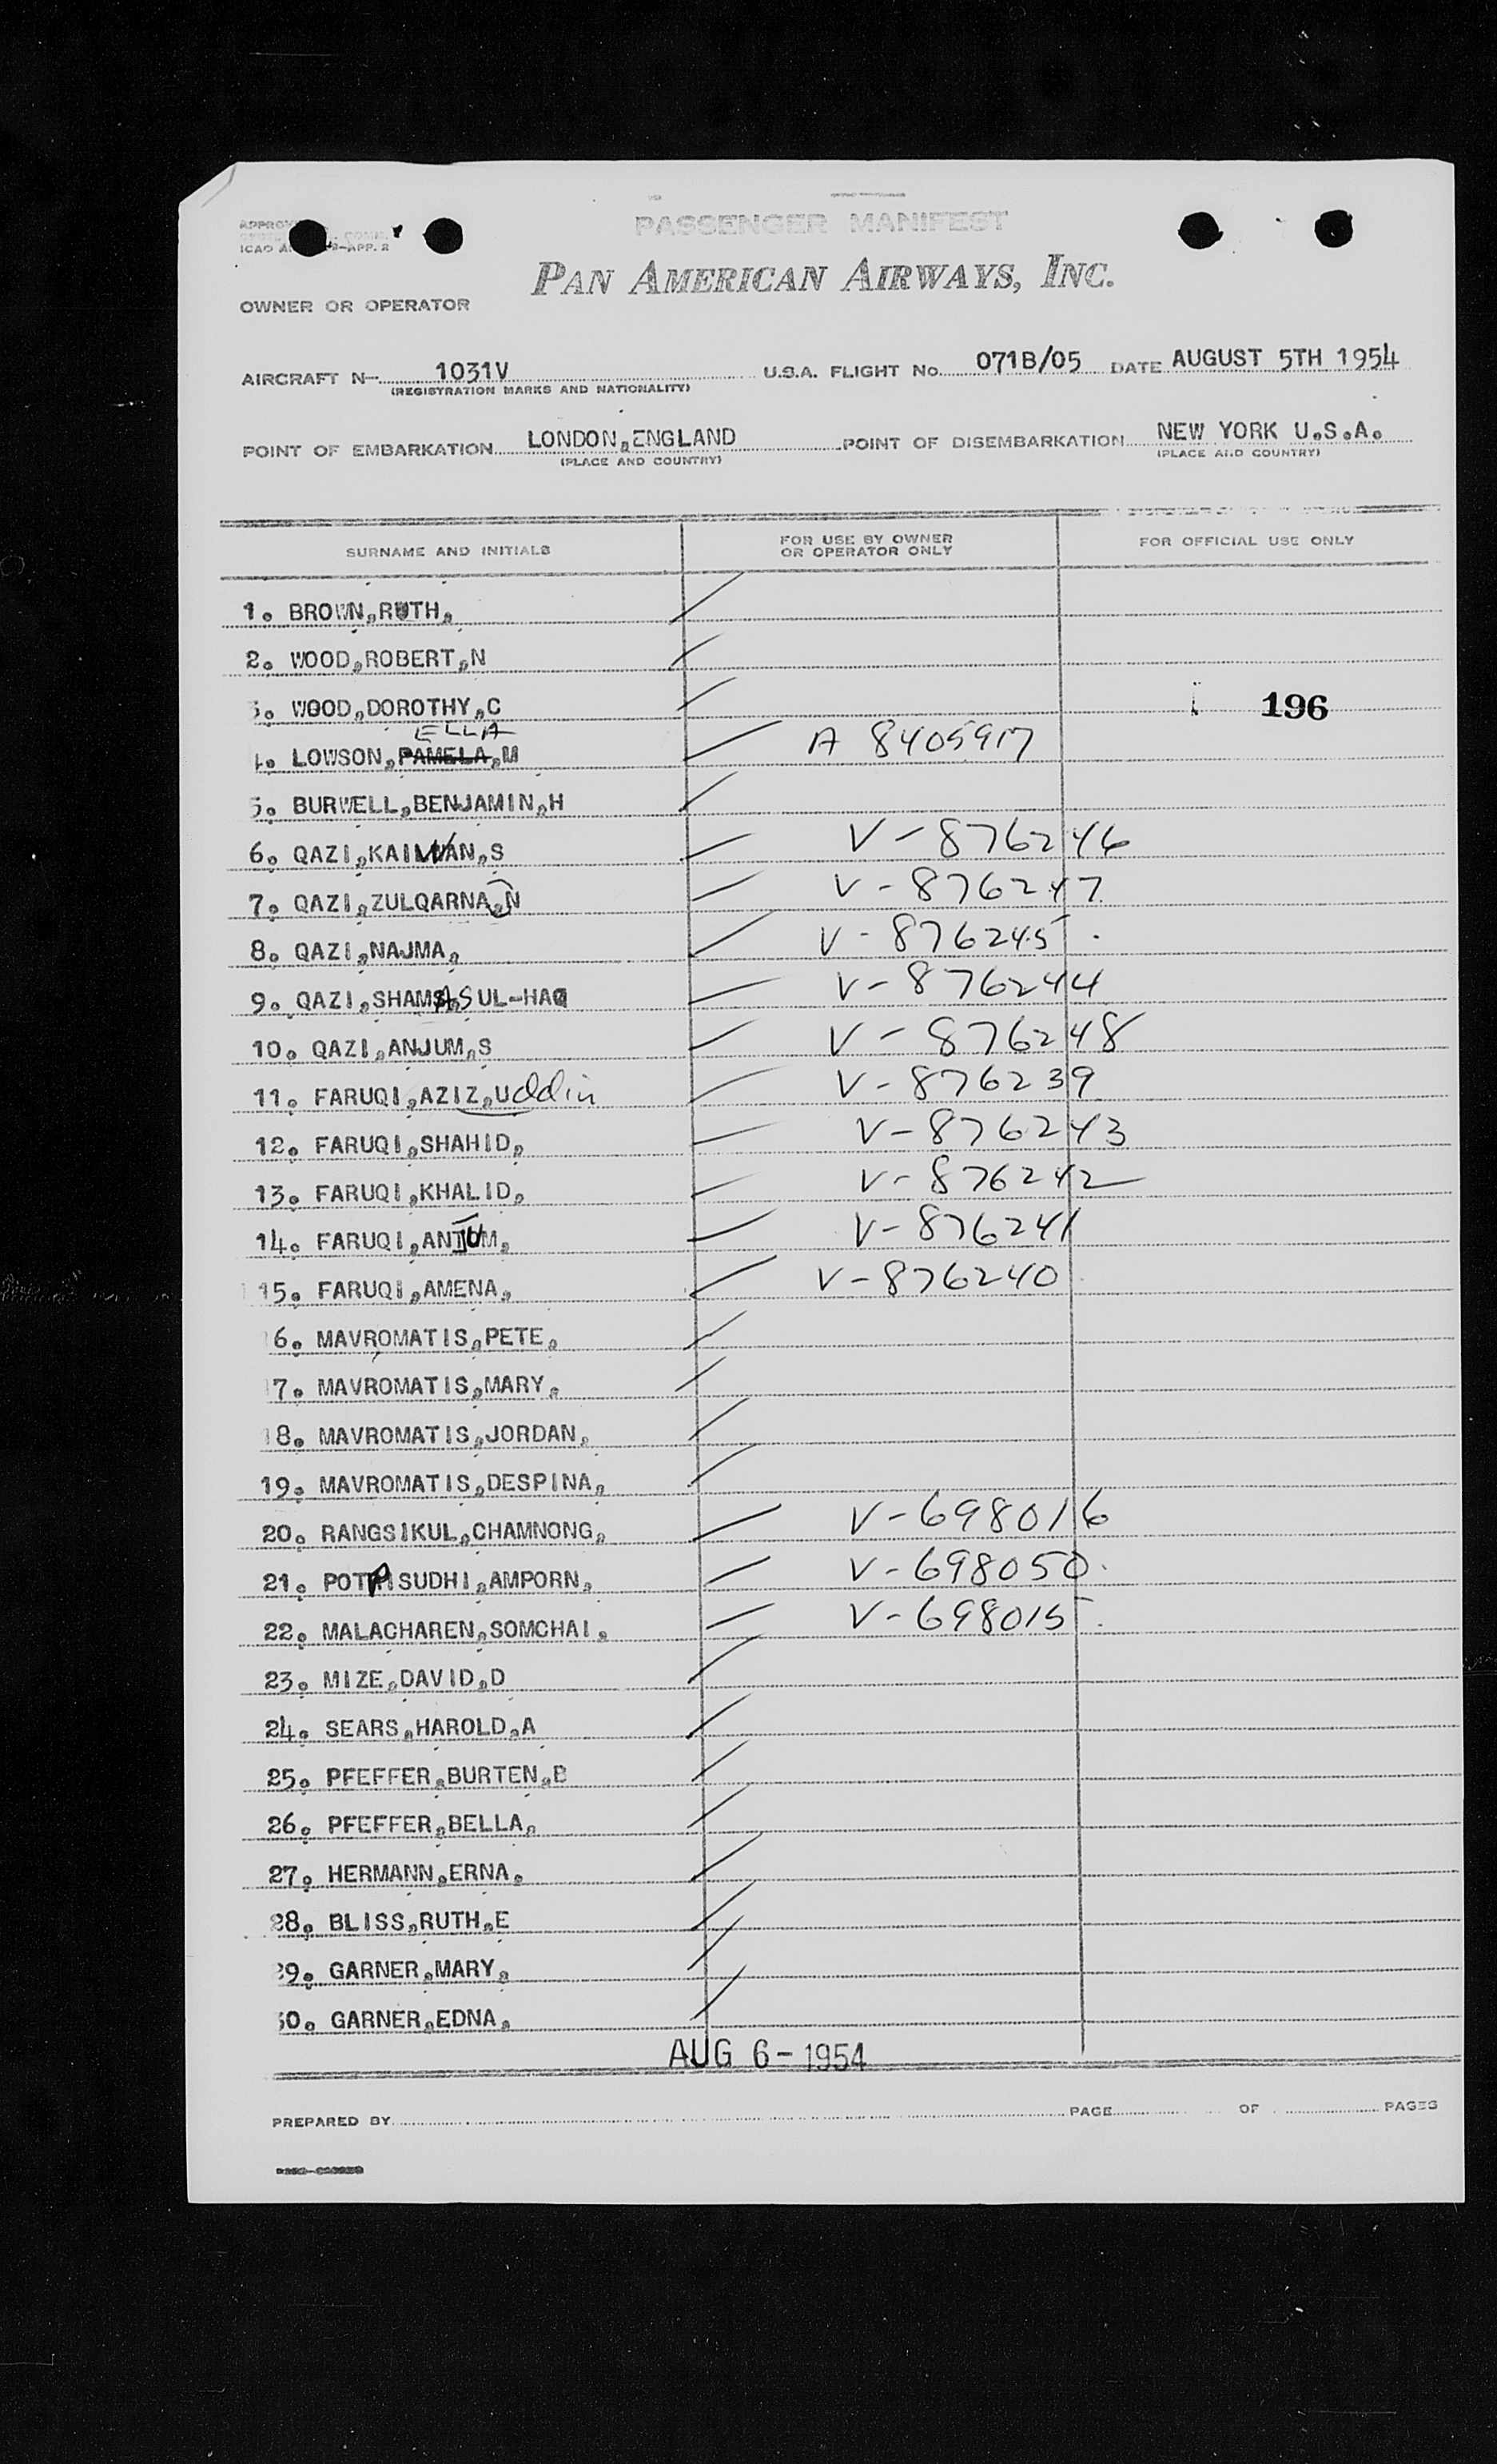 PASSENGER MANIFEST
ICAO
PAN AMERICAN AIRWAYS, INC.
OWNER OR OPERATOR
AIRCRAFT N- 1031V U.S.A. FLIGHT NO. 071B/05 DATE AUGUST 5TH 1954
(REGISTRATION MARKS AND NATIONALITY)
POINT OF EMBARKATION LONDON, ENGLAND POINT OF DISEMBARKATION NEW YORK U.S.A.
(PLACE AND COUNTRY) (PLACE AND COUNTRY)
SURNAME AND INITIALS FOR USE BY OWNER OR OPERATOR ONLY FOR OFFICIAL USE ONLY
1. BROWN,RUTH,
2. WOOD,ROBERT,N
3. WOOD,DOROTHY,C 196
ELLA
4. LOWSON,PAMELA,M A 8405917
5. BURWELL,BENJAMIN,H
6. QAZI,KAIWAN,S V-876246
7. QAZI,ZULQARNAN V-876247
8. QAZI,NAJMA, V-876245
9. QAZI,SHAMAS UL-HAQ V-876244
10. QAZI,ANJUM,S V-876248
11. FARUQI,AZIZ,Uddin V-876239
12. FARUQI,SHAHID, V-876243
13. FARUQI,KHALID, V-876242
14. FARUQI,ANJUM, V-876241
15. FARUQI,AMENA, V-876240
16. MAVROMATIS,PETE,
17. MAVROMATIS,MARY,
18. MAVROMATIS,JORDAN,
19. MAVROMATIS,DESPINA,
20. RANGSIKUL,CHAMNONG, V-698016
21. POTPISUDHI,AMPORN, V-698050
22. MALACHAREN,SOMCHAI, V-698015
23. MIZE,DAVID,D
24. SEARS,HAROLD,A
25. PFEFFER,BURTEN,B
26. PFEFFER,BELLA,
27. HERMANN,ERNA,
28. BLISS,RUTH,E
29. GARNER,MARY,
30. GARNER,EDNA,
AUG 6-1954
PREPARED BY PAGE OF PAGES